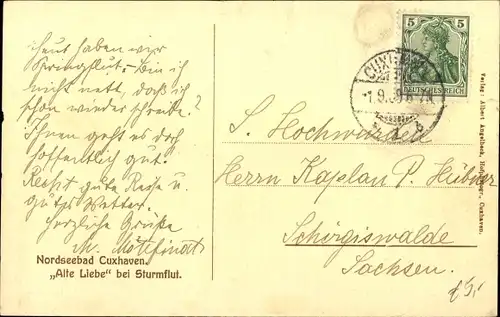 heut haben wir
Springflut. Bin ich
nicht nett, daß ich
schon wieder schreibe?
Ihnen geht es doch
hoffentlich gut.
Recht gute Reise u.
gutes Wetter.
Herzliche Grüße
M.
Nordseebad Cuxhaven.
„Alte Liebe" bei Sturmflut.
5 5
DEUTSCHES REICH
CUXHAVEN
1.9.
S. Hochwürden
Herrn Kaplan P. Hübner
Schirgiswalde
Sachsen.
Verlag: Albert Augelbeck, Cuxhaven.